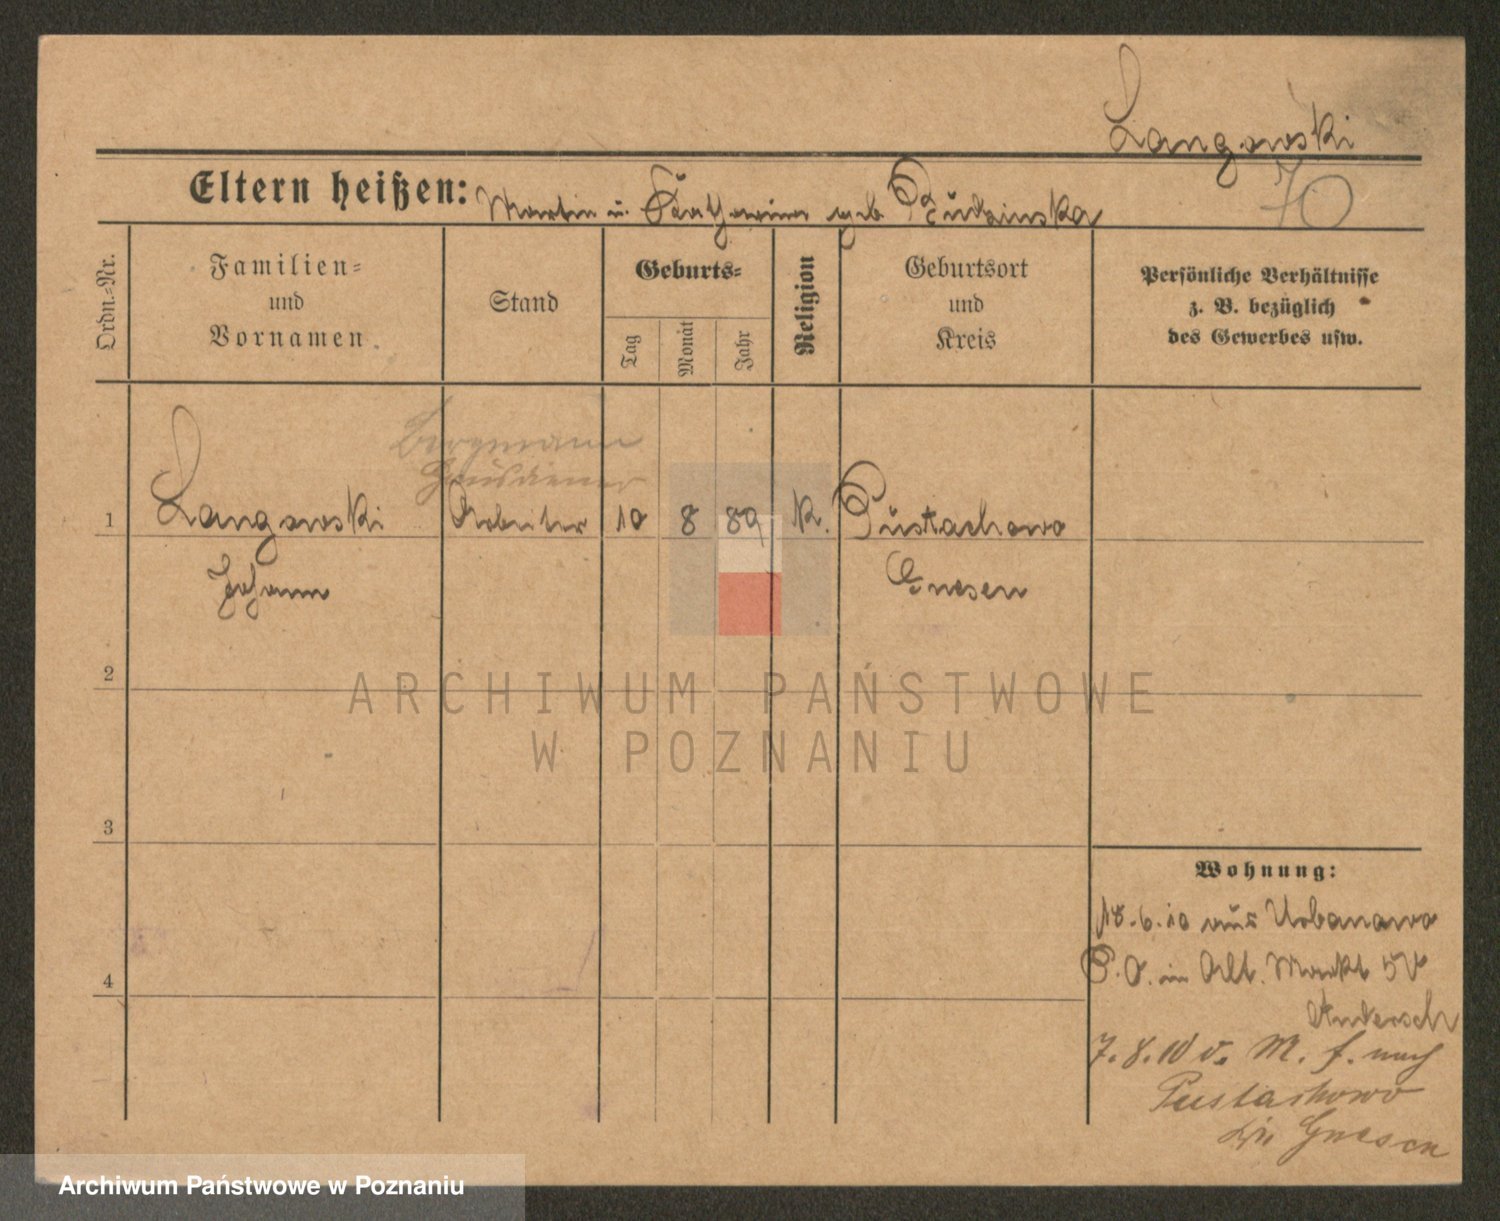 Langowski
Eltern heißen: Martin u. Katharina geb. Rudzinska
70
Ordn.-Nr.
Familien- und Vornamen
Stand
Geburts-
Tag
Monat
Jahr
Religion
Geburtsort und Kreis
Persönliche Verhältnisse
z. B. bezüglich
des Gewerbes usw.
Bergmann
Hausdiener
1 Langowski Arbeiter 10 8 89 K. Pustachowo
Johann Gnesen
2
3
4
Wohnung:
18.6.10 aus Urbanowo
P.O. in Alt. Markt 50
Andersch
7.8.10 v. M. f. nach
Pustachowo
Gnesen
ARCHIWUM PAŃSTWOWE
W POZNANIU
Archiwum Państwowe w Poznaniu